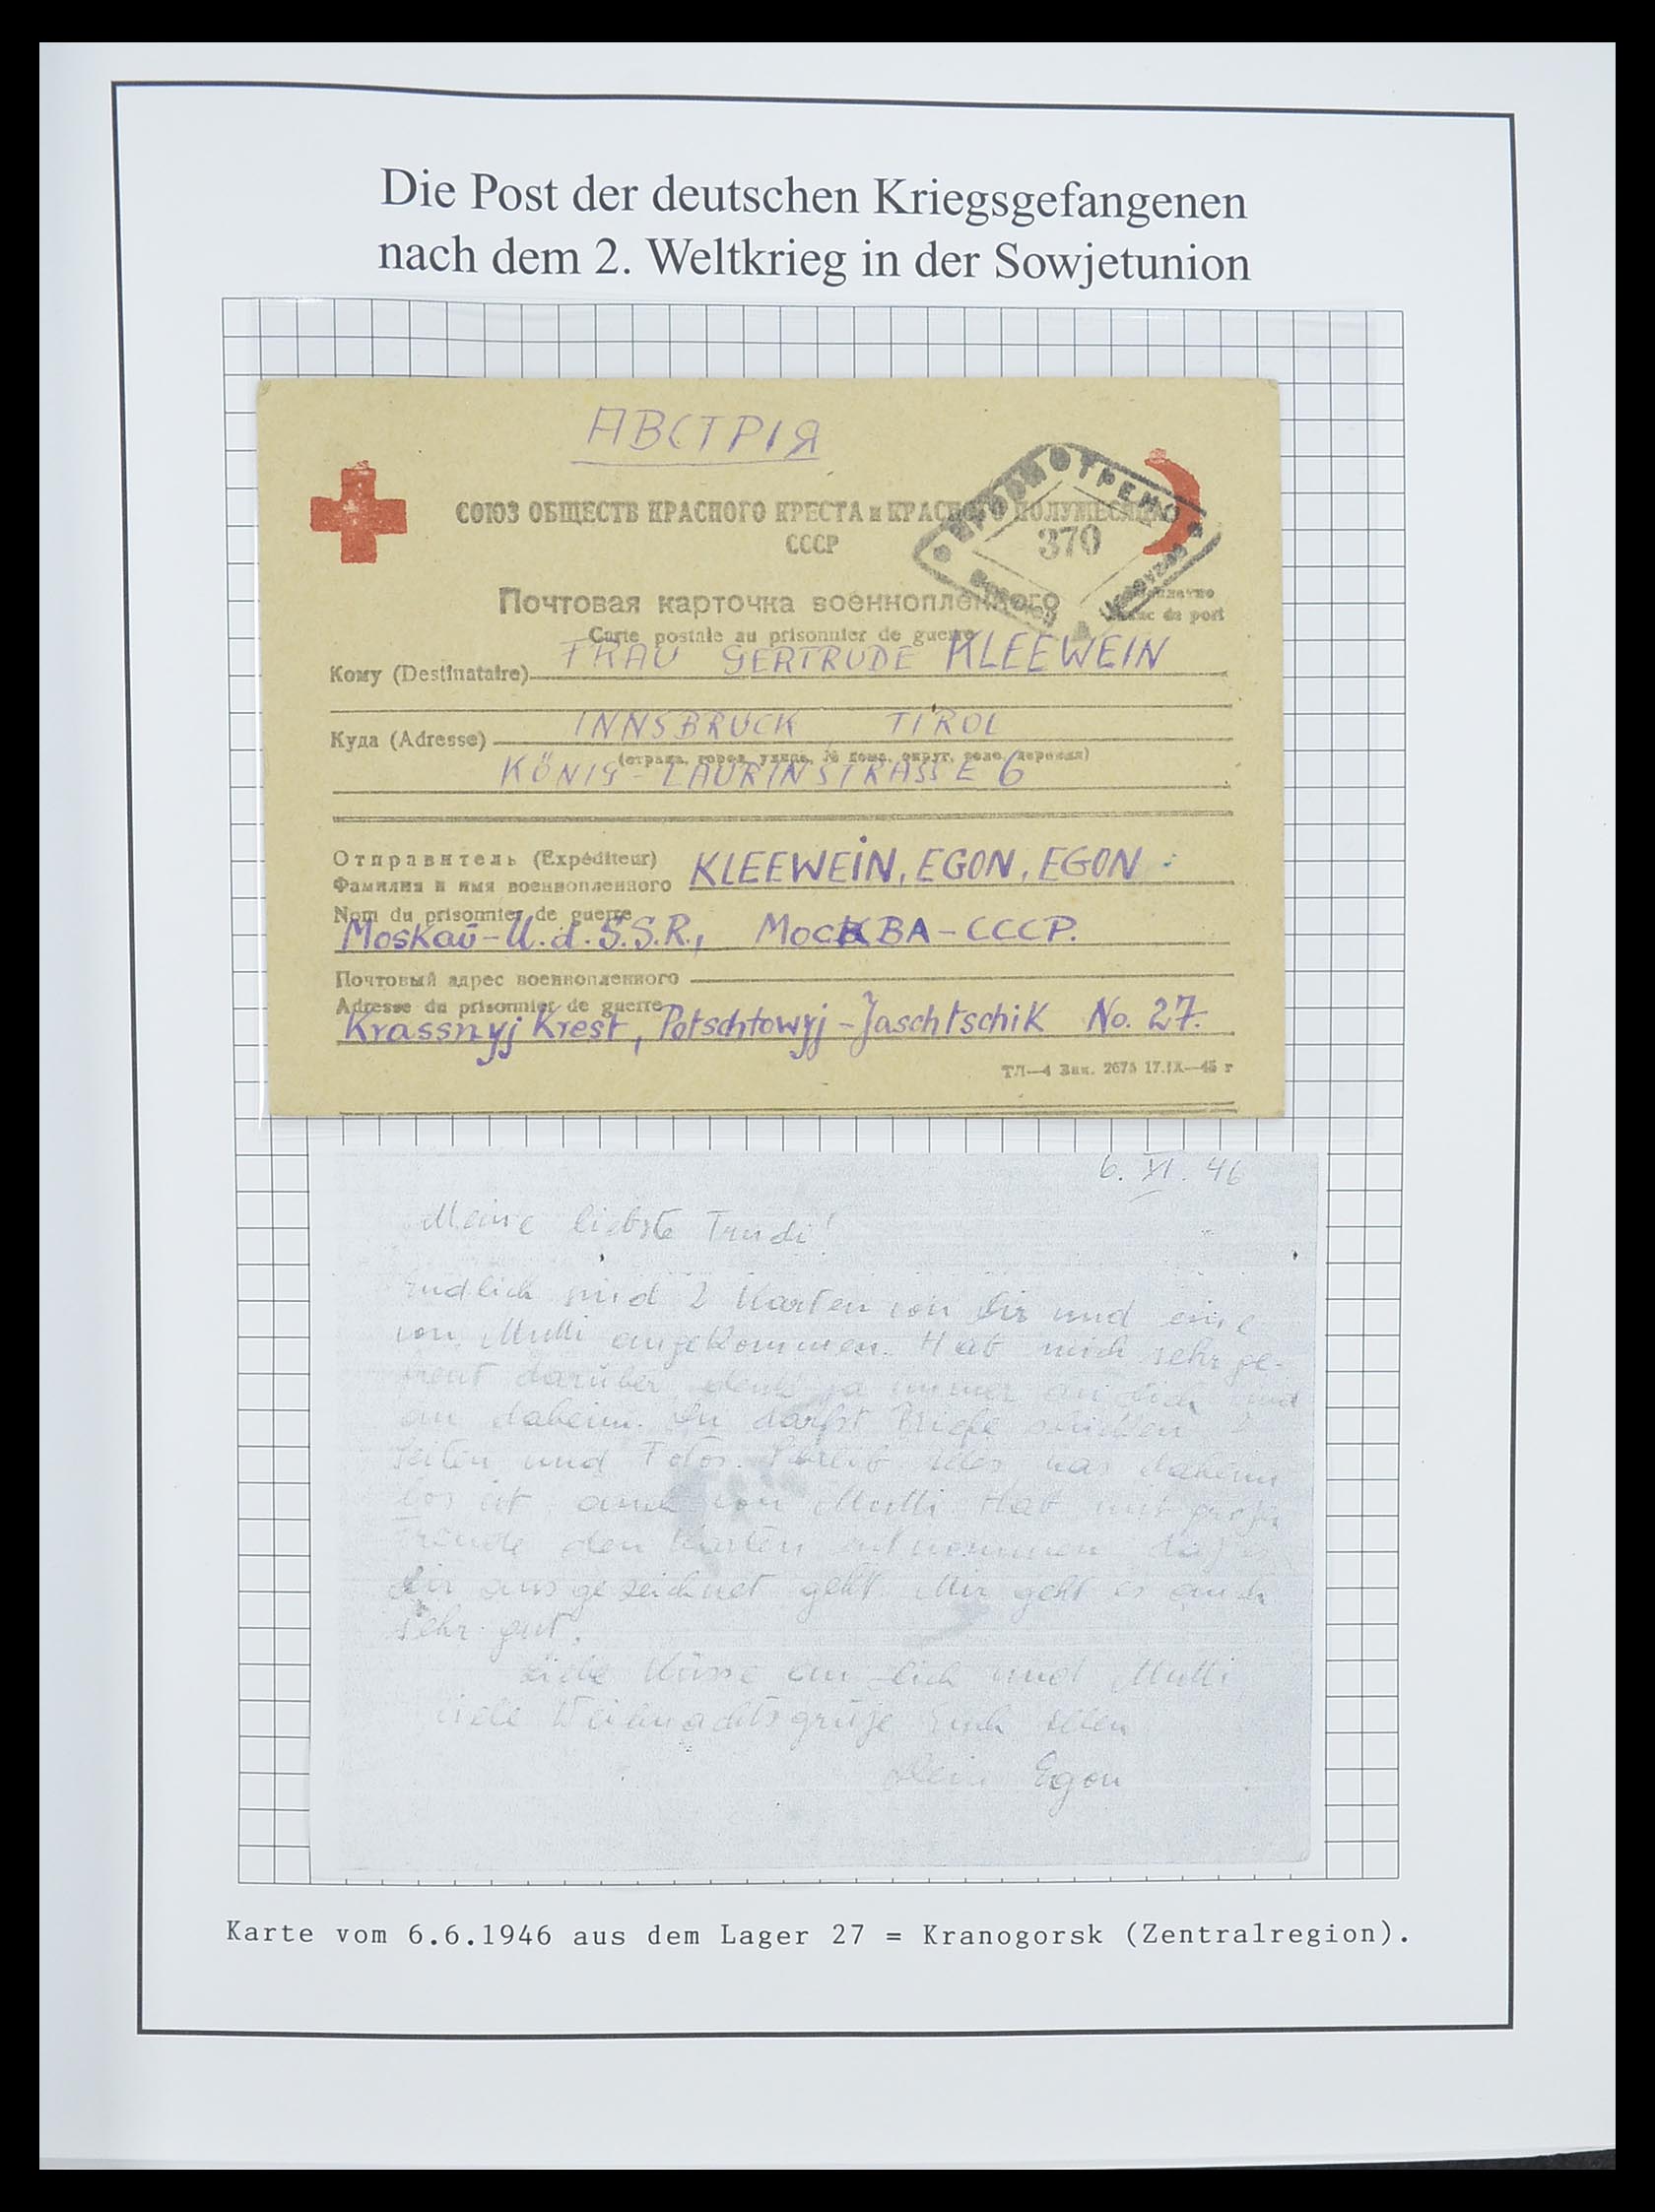 Die Post der deutschen Kriegsgefangenen
nach dem 2. Weltkrieg in der Sowjetunion
АВСТРІЯ
СОЮЗ ОБЩЕСТВ КРАСНОГО КРЕСТА и КРАСНОГО ПОЛУМЕСЯЦА
СССР
ПРОСМОТРЕНО
370
Почтовая карточка военнопленного
Carte postale au prisonnier de guerre
Franc de port
Кому (Destinataire) FRAU GERTRUDE KLEEWEIN
Куда (Adresse) INNSBRUCK TIROL
(страна, город, улица, № дома, округ, село, деревня)
KÖNIG-LAURINSTRASSE 6
Отправитель (Expéditeur)
Фамилия и имя военнопленного KLEEWEIN, EGON, EGON
Nom du prisonnier de guerre
Moskaŭ-U.d.S.S.R., МОСКВА-СССР.
Почтовый адрес военнопленного
Adresse du prisonnier de guerre
Krassnyj Krest, Potschtowyj-Jaschtschik No. 27.
ТЛ—4 Зак. 2675 17.IX—45 г
6. XI. 46
Meine liebste Trudi!
Endlich sind 2 Karten von Dir und eine
von Mutti angekommen. Hab mich sehr ge-
freut darüber, denk ja immer an Dich und
an daheim. Du darfst Briefe schicken 2
Seiten und Fotos. Schreib alles was daheim
los ist, auch von Mutti. Hab mit großer
Freude den Karten entnommen daß es
Dir ausgezeichnet geht. Mir geht es auch
sehr gut.
Viele Küsse an Dich und Mutti
viele Weihnachtsgrüße Euch allen
Dein Egon
Karte vom 6.6.1946 aus dem Lager 27 = Kranogorsk (Zentralregion).